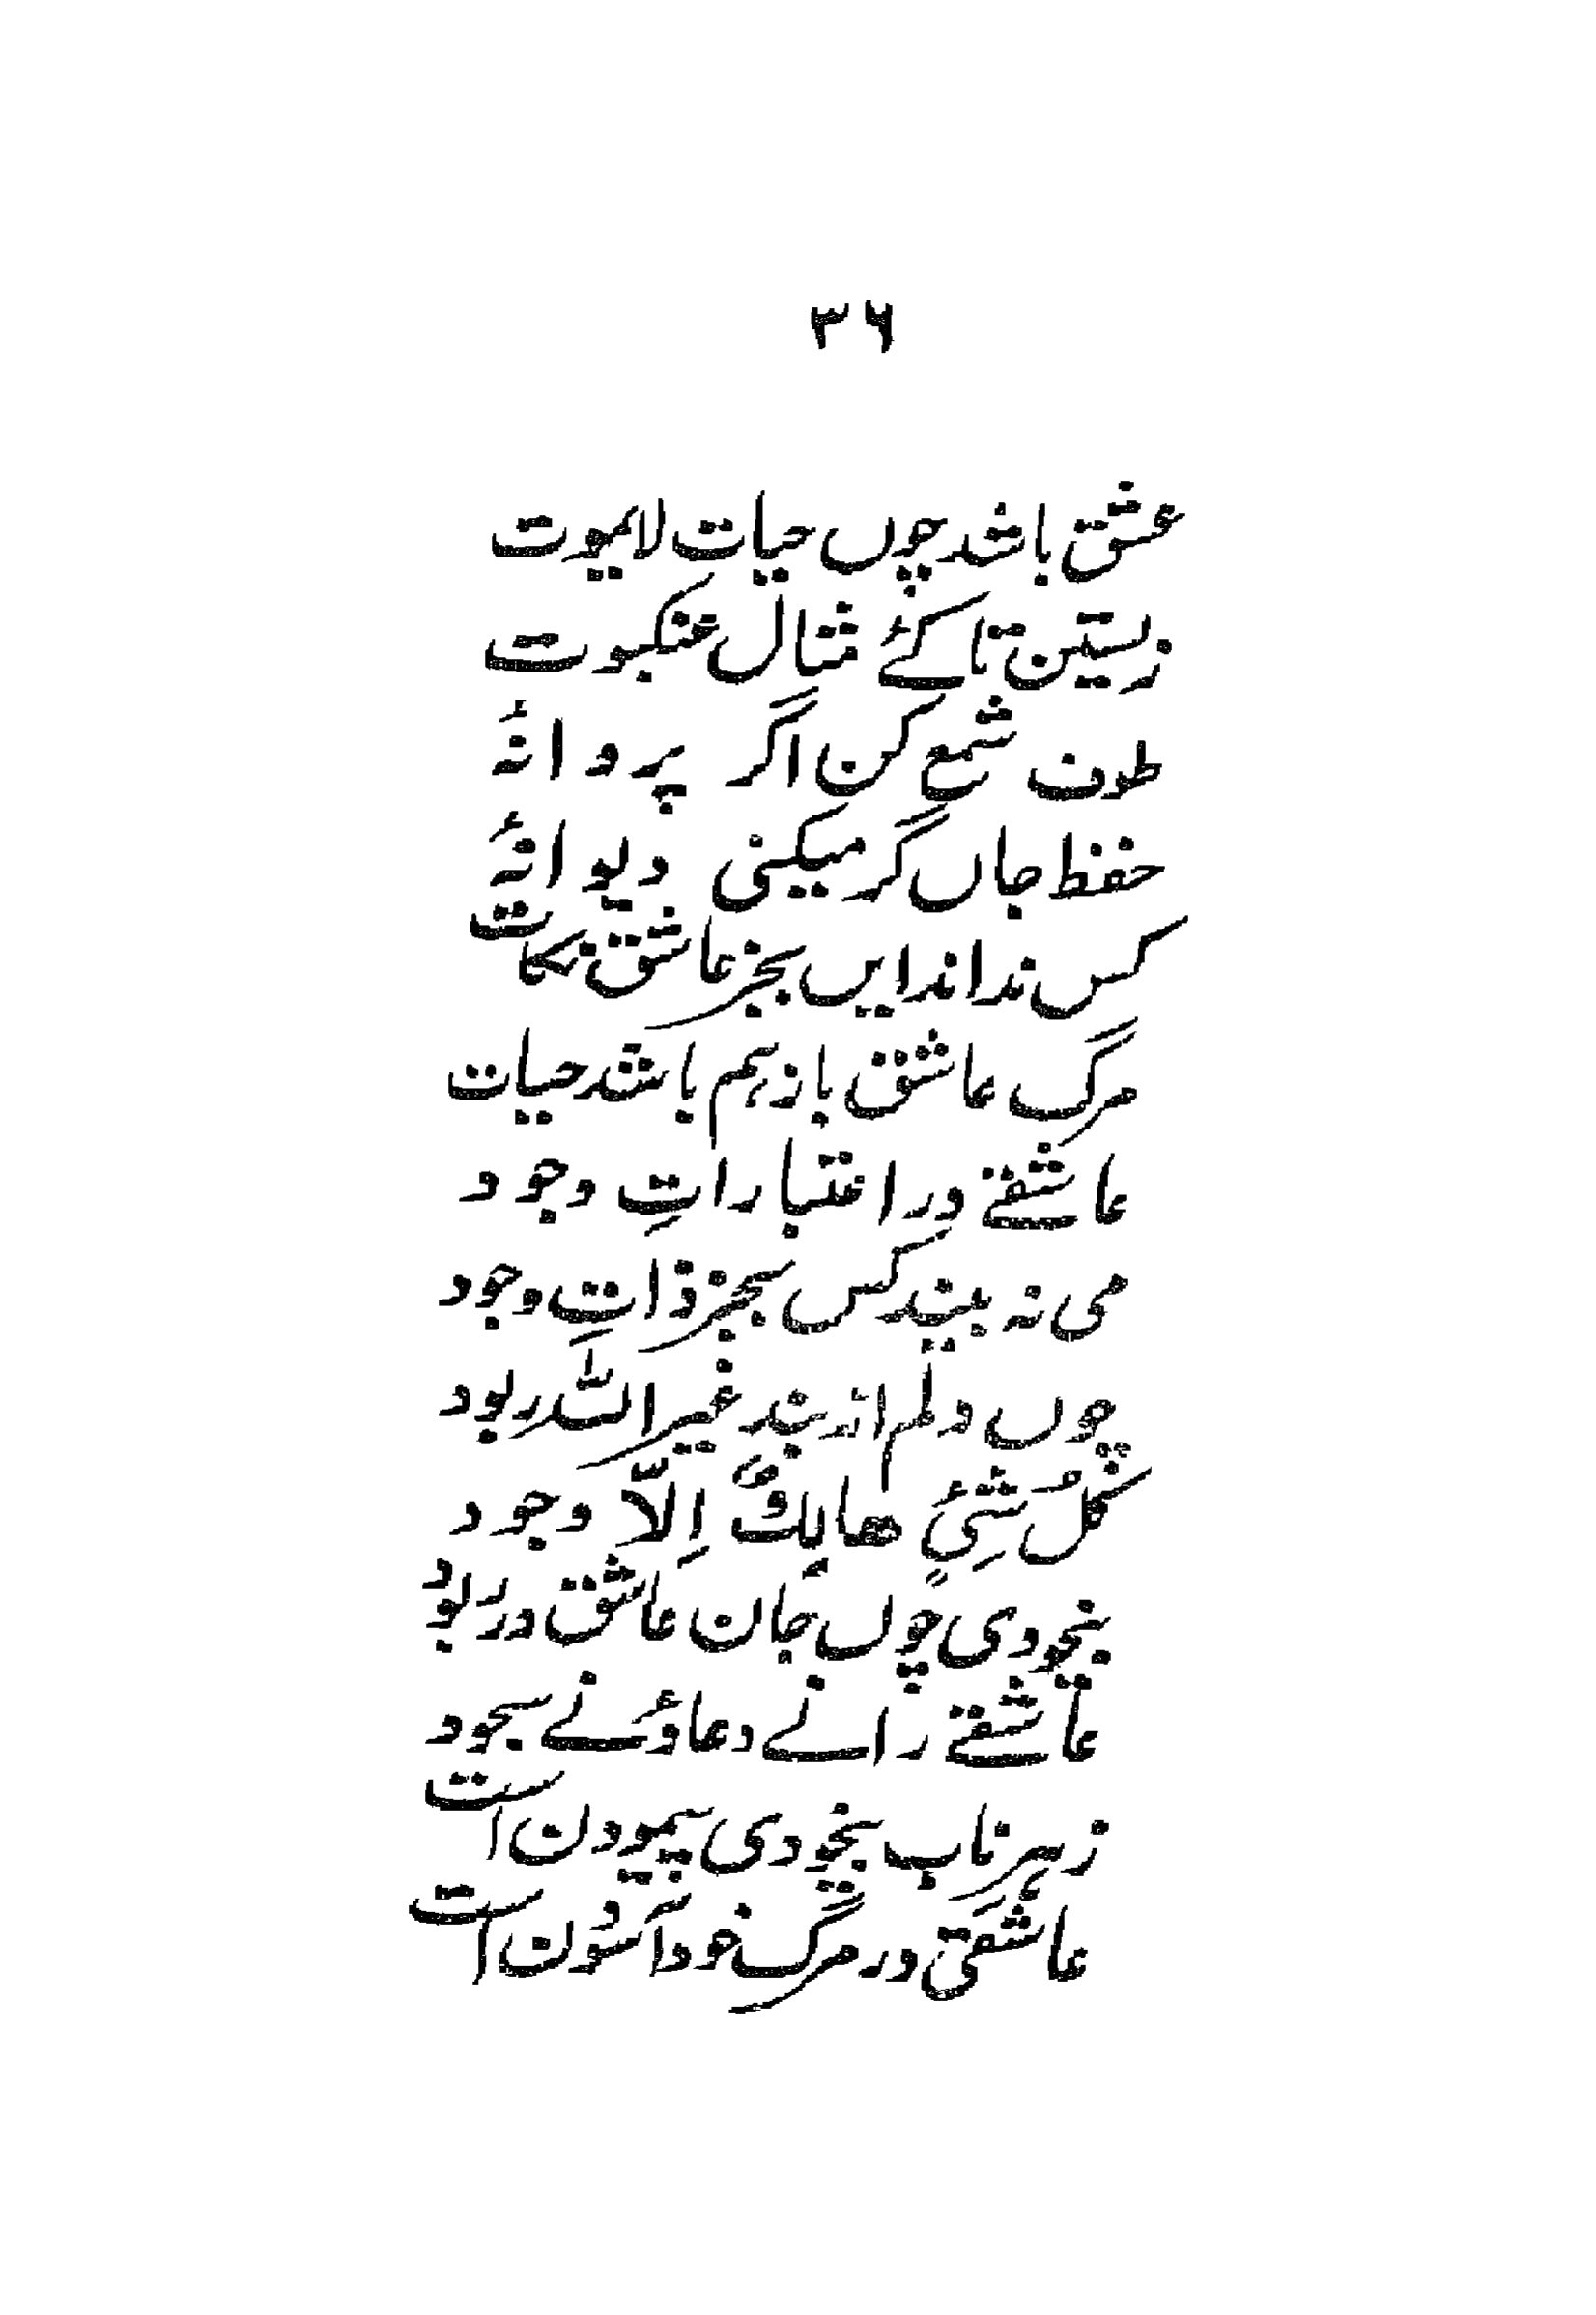 ۳۶
عشق باشد چوں حیات لایموت
زیستن تا کئے مثال عنکبوت
طوف شمع کن اگر پروانۂ
حفظ جاں گر میکنی دیوانۂ
کس نداند ایں بجز عاشق نکات
مرگ عاشق باز ہم باشد حیات
عاشقے در اعتباراتِ وجود
می نہ بیند کس بجز ذاتِ وجود
چوں دلم از بندِ غیر اللہ ربود
کُلُّ شَیْئٍ ھالِکٌ اِلّا وجود
بیخودی چوں جان عاشق در ربود
عاشقے را نے دعاؤ نے سجود
زہرِ ناب بیخودی پیمودن است
عاشقی در مرگ خود آسُودن است